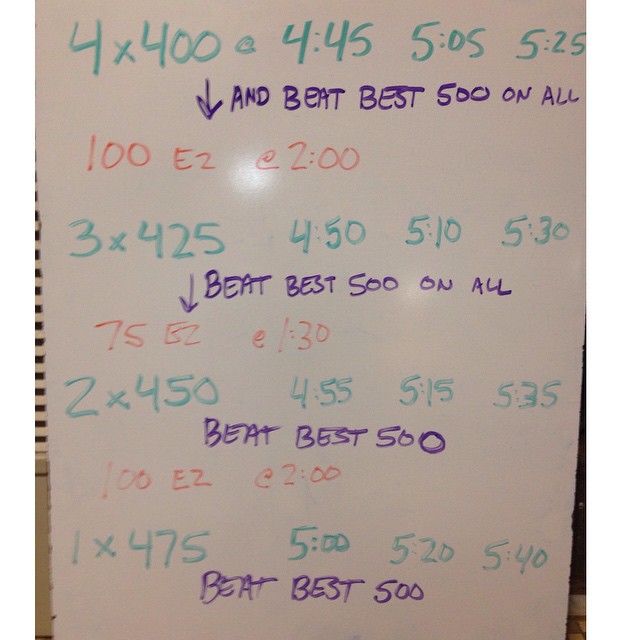 4 x 400 @ 4:45 5:05 5:25
↓ AND BEAT BEST 500 ON ALL
100 EZ @ 2:00
3 x 425 4:50 5:10 5:30
↓ BEAT BEST 500 ON ALL
75 EZ @ 1:30
2 x 450 4:55 5:15 5:35
BEAT BEST 500
100 EZ @ 2:00
1 x 475 5:00 5:20 5:40
BEAT BEST 500